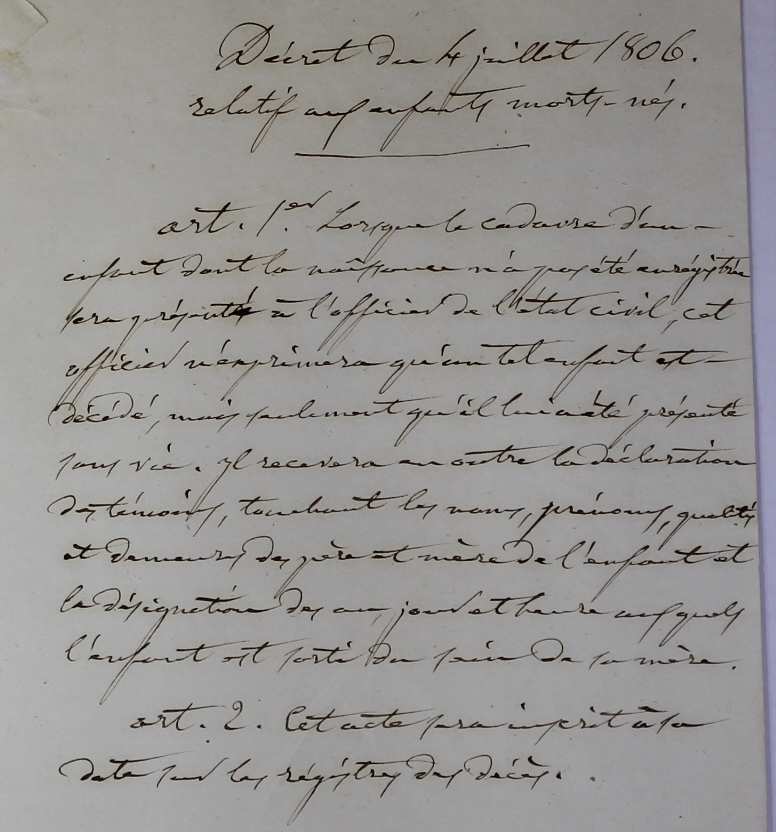 Décret du 4 juillet 1806.
relatif aux enfants morts-nés.
art. 1.er Lorsque le cadavre d'un
enfant dont la naissance n'a pas été enrégistrée
sera présenté à l'officier de l'état civil, cet
officier n'exprimera qu'un tel enfant est
décédé, mais seulement qu'il lui a été présenté
sans vie. Il recevera en outre la déclaration
des témoins, touchant les noms, prénoms, qualités
et demeures des père et mère de l'enfant et
la désignation des an, jour et heure auxquels
l'enfant est sorti du sein de sa mère.
art. 2. Cet acte sera inscrit à sa
date sur les régistres des décès.